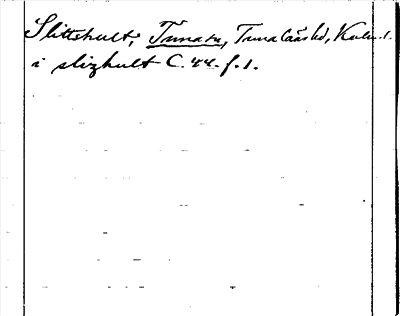 Slittshult, Tuna sn, Tunaläns hd, Kalm. l.
i slizhult C. 44. f. 1.